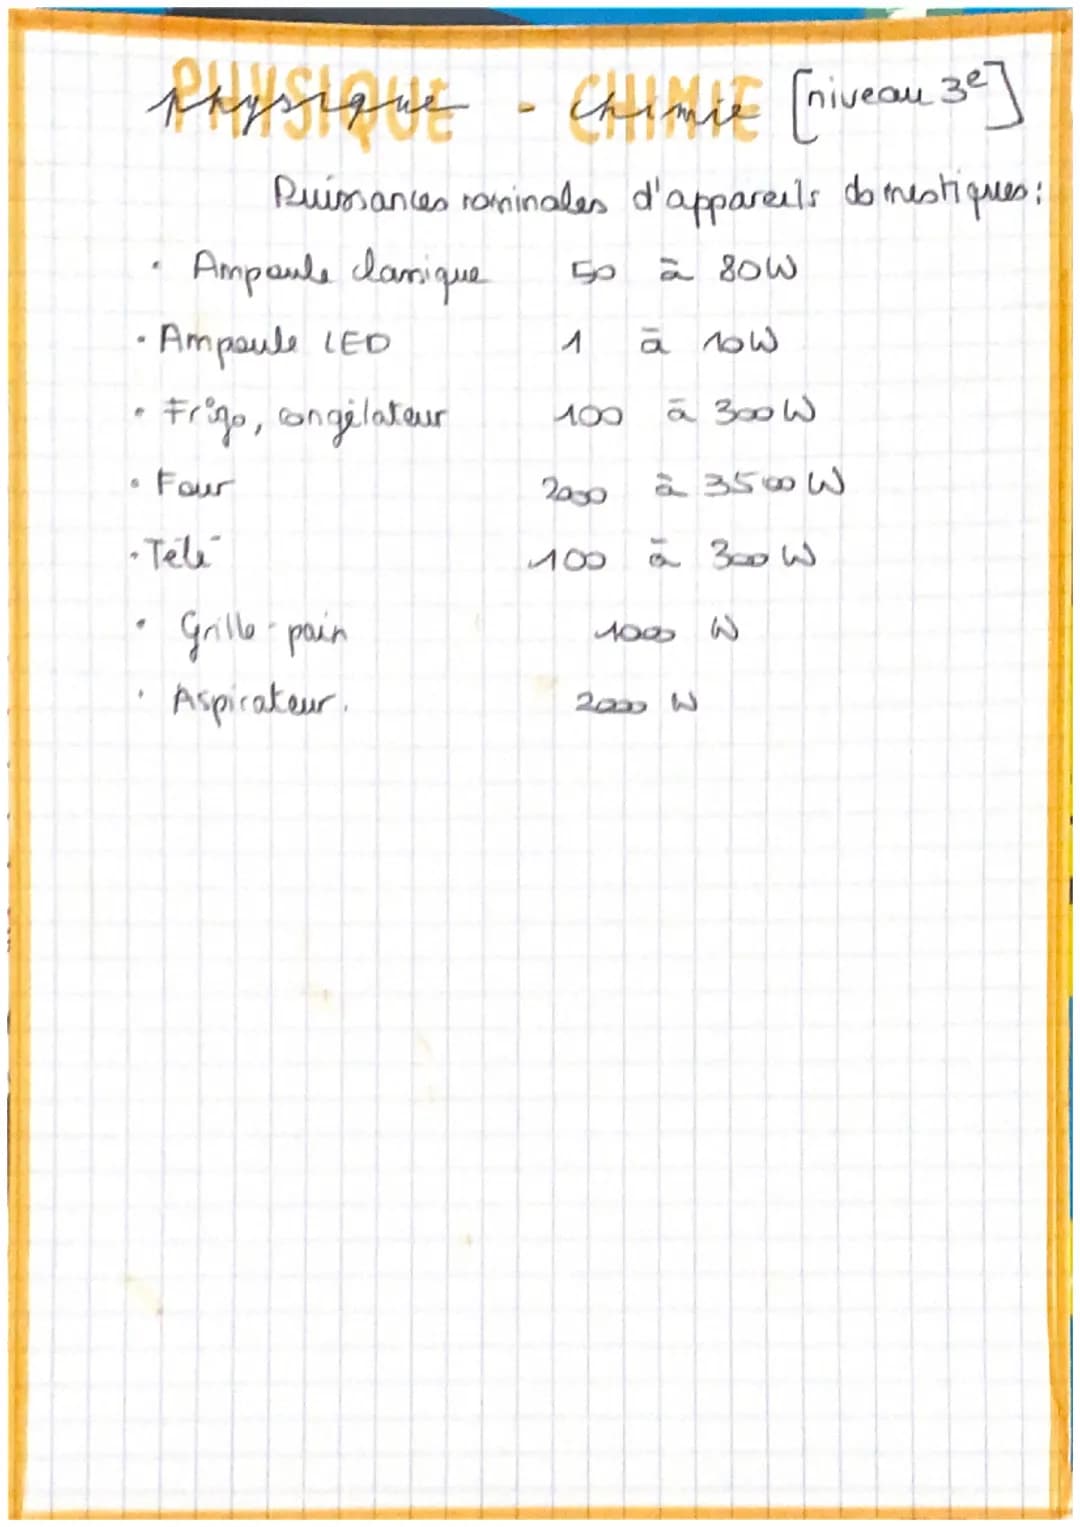 Physique - Chimie [niveau 3e]
Puissances nominales d'appareils domestiques :
· Ampoule classique 50 à 80W
· Ampoule LED 1 à 10W
· Frigo, congélateur 100 à 300W
· Four 2000 à 3500W
· Télé 100 à 300W
· Grille-pain 1000 W
· Aspirateur. 2000 W